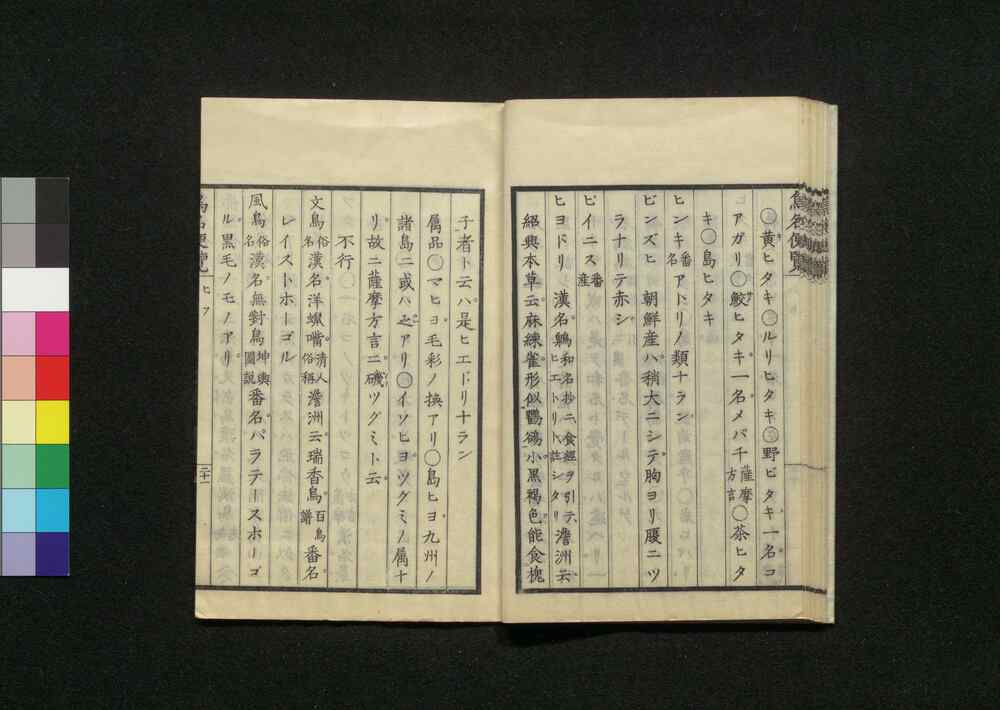 鳥名便覧
○黄ヒタキ○ルリヒタキ○野ビタキ一名コ
ヒアガリ○鮫ヒタキ一名メバチ薩摩方言○茶ヒタ
キ○島ヒタキ
ヒンキ番名アトリノ類ナラン
ビンズヒ 朝鮮産ハ稍大ニシテ胸ヨリ腹ニツ
ラナリテ赤シ
ピイニス番産
ヒヨドリ 漢名鵯和名抄ニ食経ヲ引テヒエトリト註シタリ澹洲云
紹興本草云麻練雀形似鸜鵒小黒褐色能食槐
子者ト云ハ是ヒエドリナラン
属品○マヒヨ毛彩ノ換アリ○島ヒヨ九州ノ
諸島ニ或ハ之アリ○イソヒヨツグミノ属ナ
リ故ニ薩摩方言ニ磯ツグミト云
不行
文鳥俗名漢名洋蝋嘴清人俗称澹洲云瑞香鳥百鳥譜番名
レイストホーゴル
風鳥俗名漢名無對鳥坤輿圖説番名パラテースホーゴ
ル黒毛ノモノアリ
鳥名便覧 ヒフ 二十一